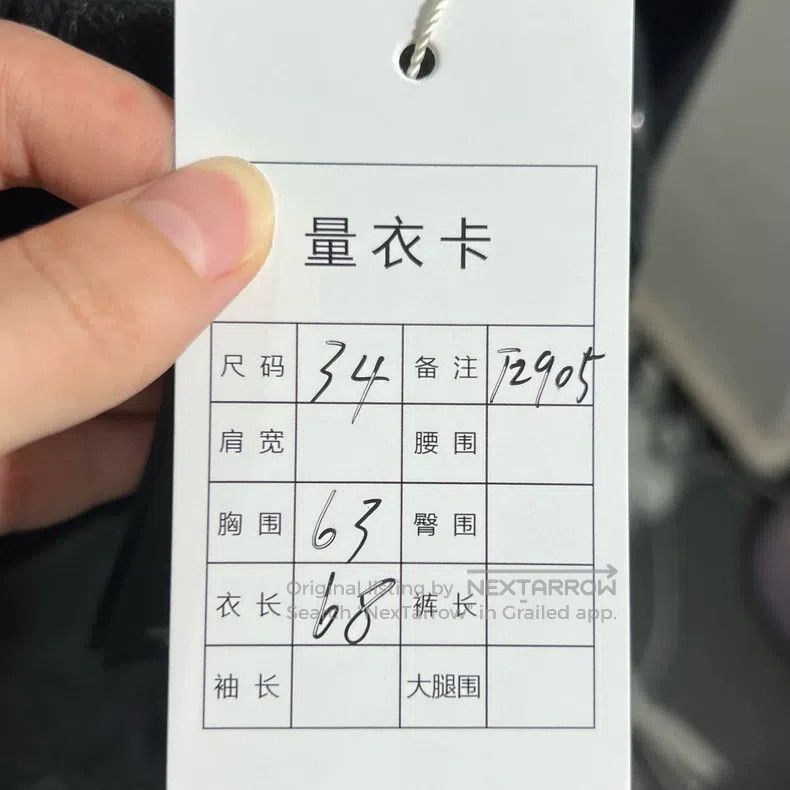 量衣卡
尺码 34 备注 T2905
肩宽 腰围
胸围 63 臀围
衣长 68 裤长
袖长 大腿围
Original listing by NEXTARROW
Search "NexTarrow" in Grailed app.